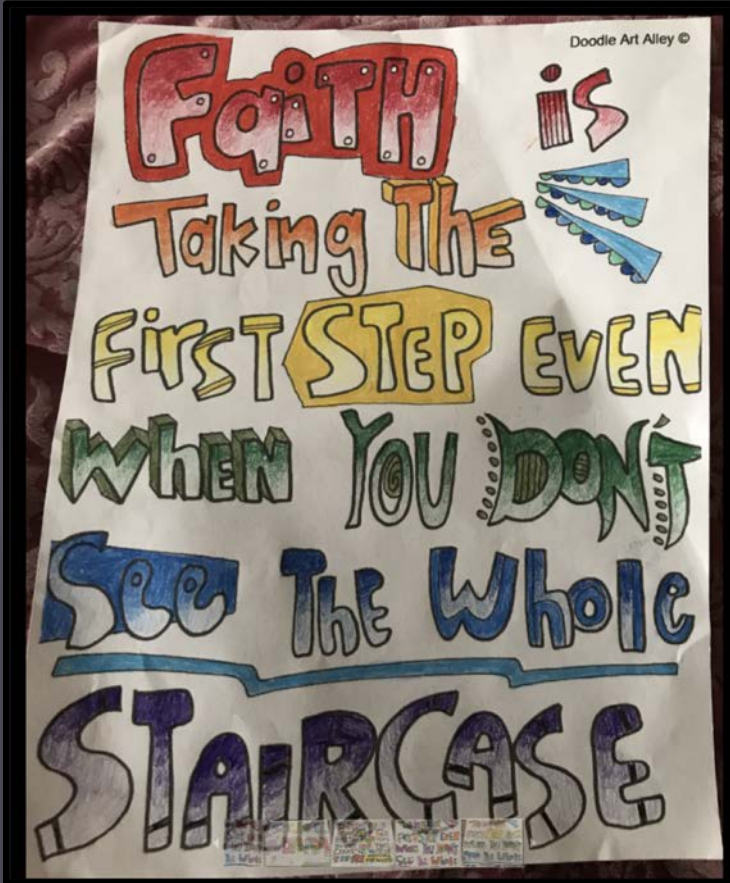 Doodle Art Alley ©
FaiTH is
Taking The
First STEP EVEN
WhEN YOU DON'T
See The Whole
STAIRCASE